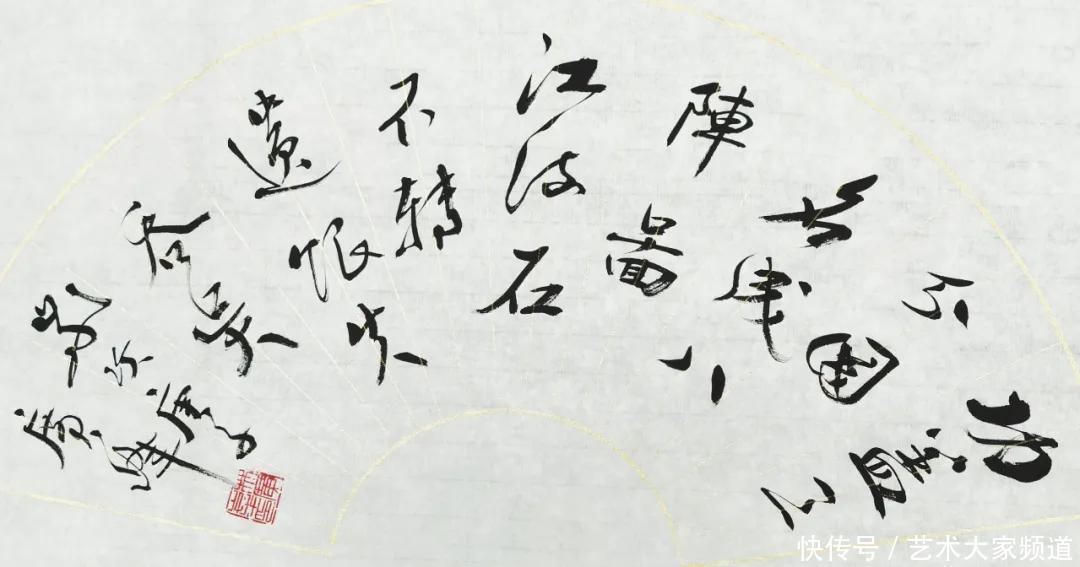 功蓋三
分國
名成八
陣圖
江流石
不轉
遺恨失
吞吳
快传号 / 艺术大家频道